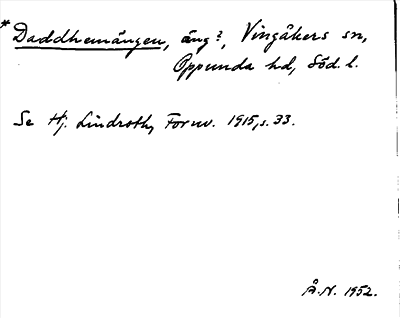 * Daddhemängen, äng?, Vingåkers sn,
Oppunda hd, Söd. l.
Se Hj. Lindroth, Fornv. 1915, s. 33.
Å.N. 1952.